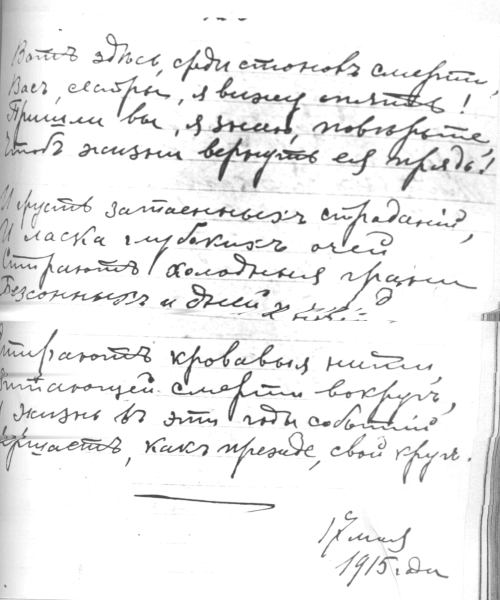 Вотъ здѣсь, средь стоновъ смерти,
Васъ, сестры, я вижу опять!
Пришли вы, я знаю, повѣрьте,
Чтобъ жизни вернуть ея прядь!
И грусть затаенныхъ страданій,
И ласка глубокихъ очей
Стираютъ холодныя грани
Безсонныхъ и дней
Стираютъ кровавыя нити,
Витающей смерти вокругъ,
И жизнь въ эти годы событій
Вершаетъ, какъ прежде, свой кругъ.
17 мая
1915 года